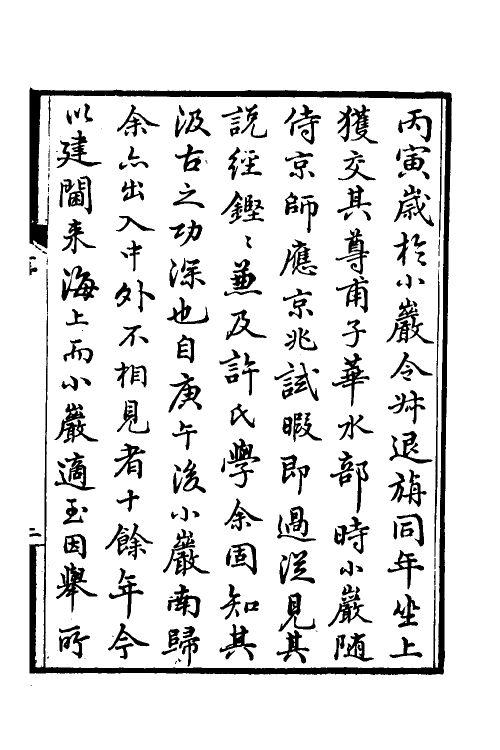 丙寅歲於小巖令叔退旃同年坐上
獲交其尊甫子華水部時小巖隨
侍京師應京兆試暇即過從見其
說經鏗〻兼及許氏學余固知其
汲古之功深也自庚午後小巖南歸
余亦出入中外不相見者十餘年今
以建閫来海上而小巖適至因舉所
序
二